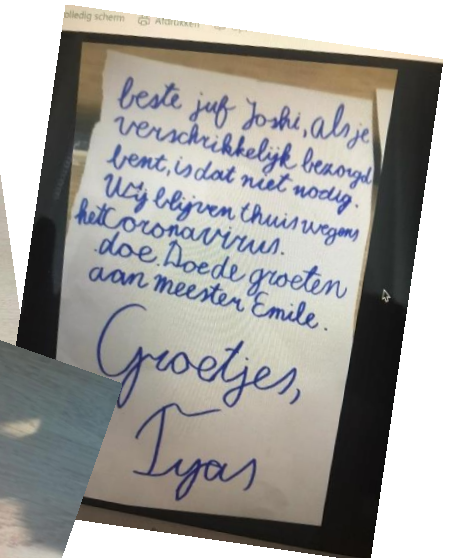 olledig scherm Afdrukken
beste juf Joshi, als je
verschrikkelijk bezorgd
bent, is dat niet nodig.
Wij blijven thuis wegens
het Coronavirus.
doe. Doe de groeten
aan meester Emile.
Groetjes,
Tyas